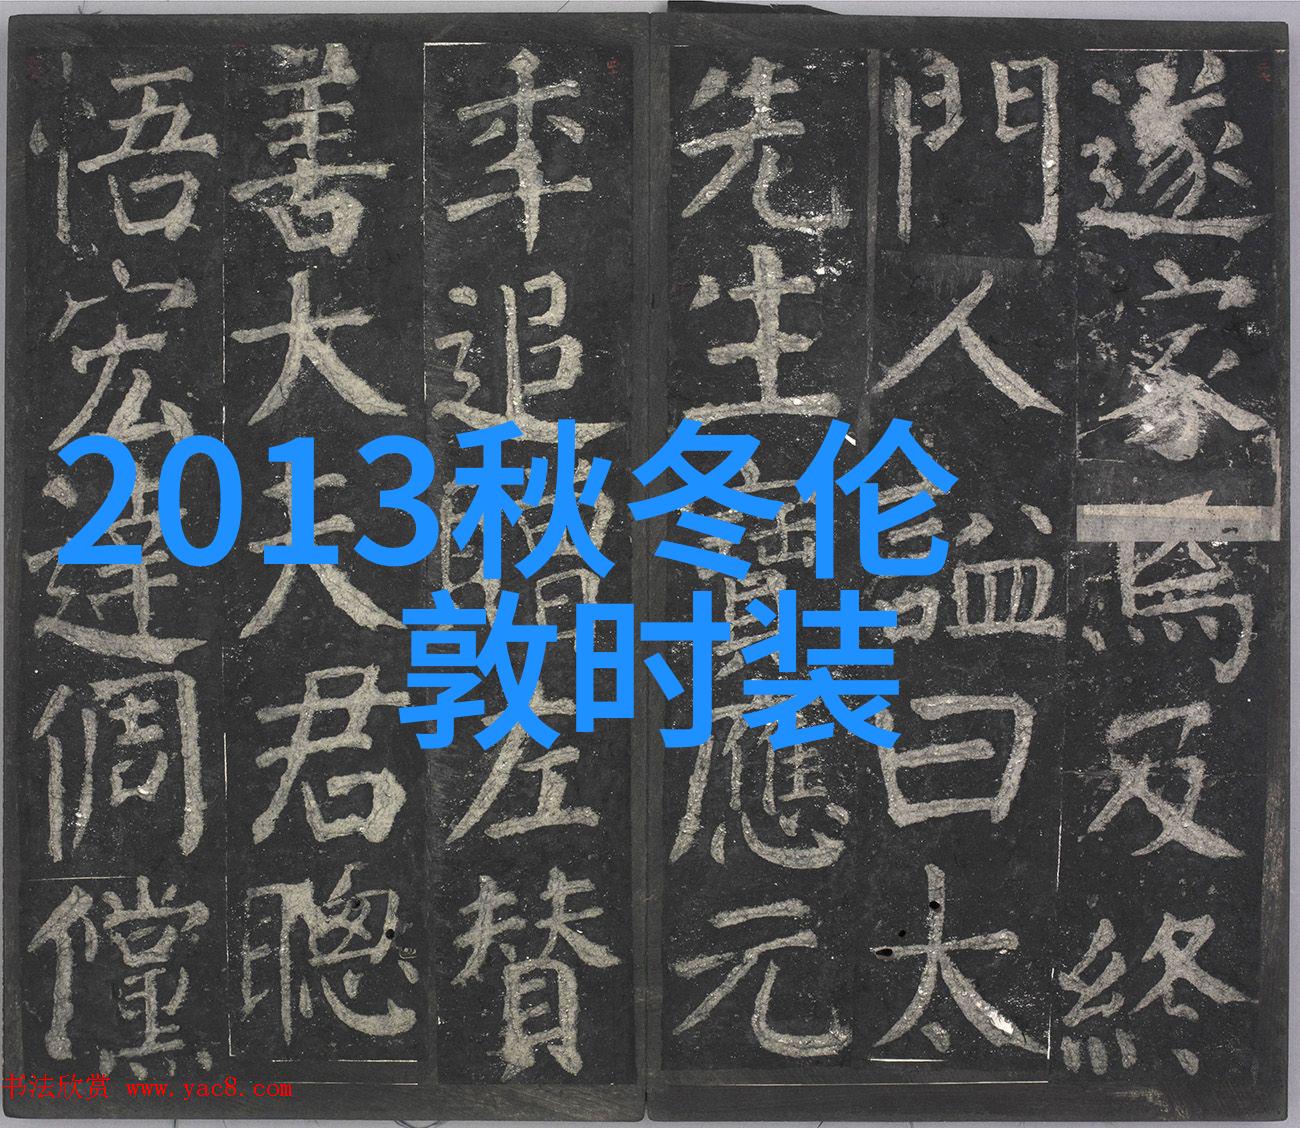 2013秋冬伦
敦时装
遂家焉及終
門人諡曰太
先生寶應元
年追贈左贊
善大夫君聰
悟宏達倜儻
书法欣赏 www.yac8.com